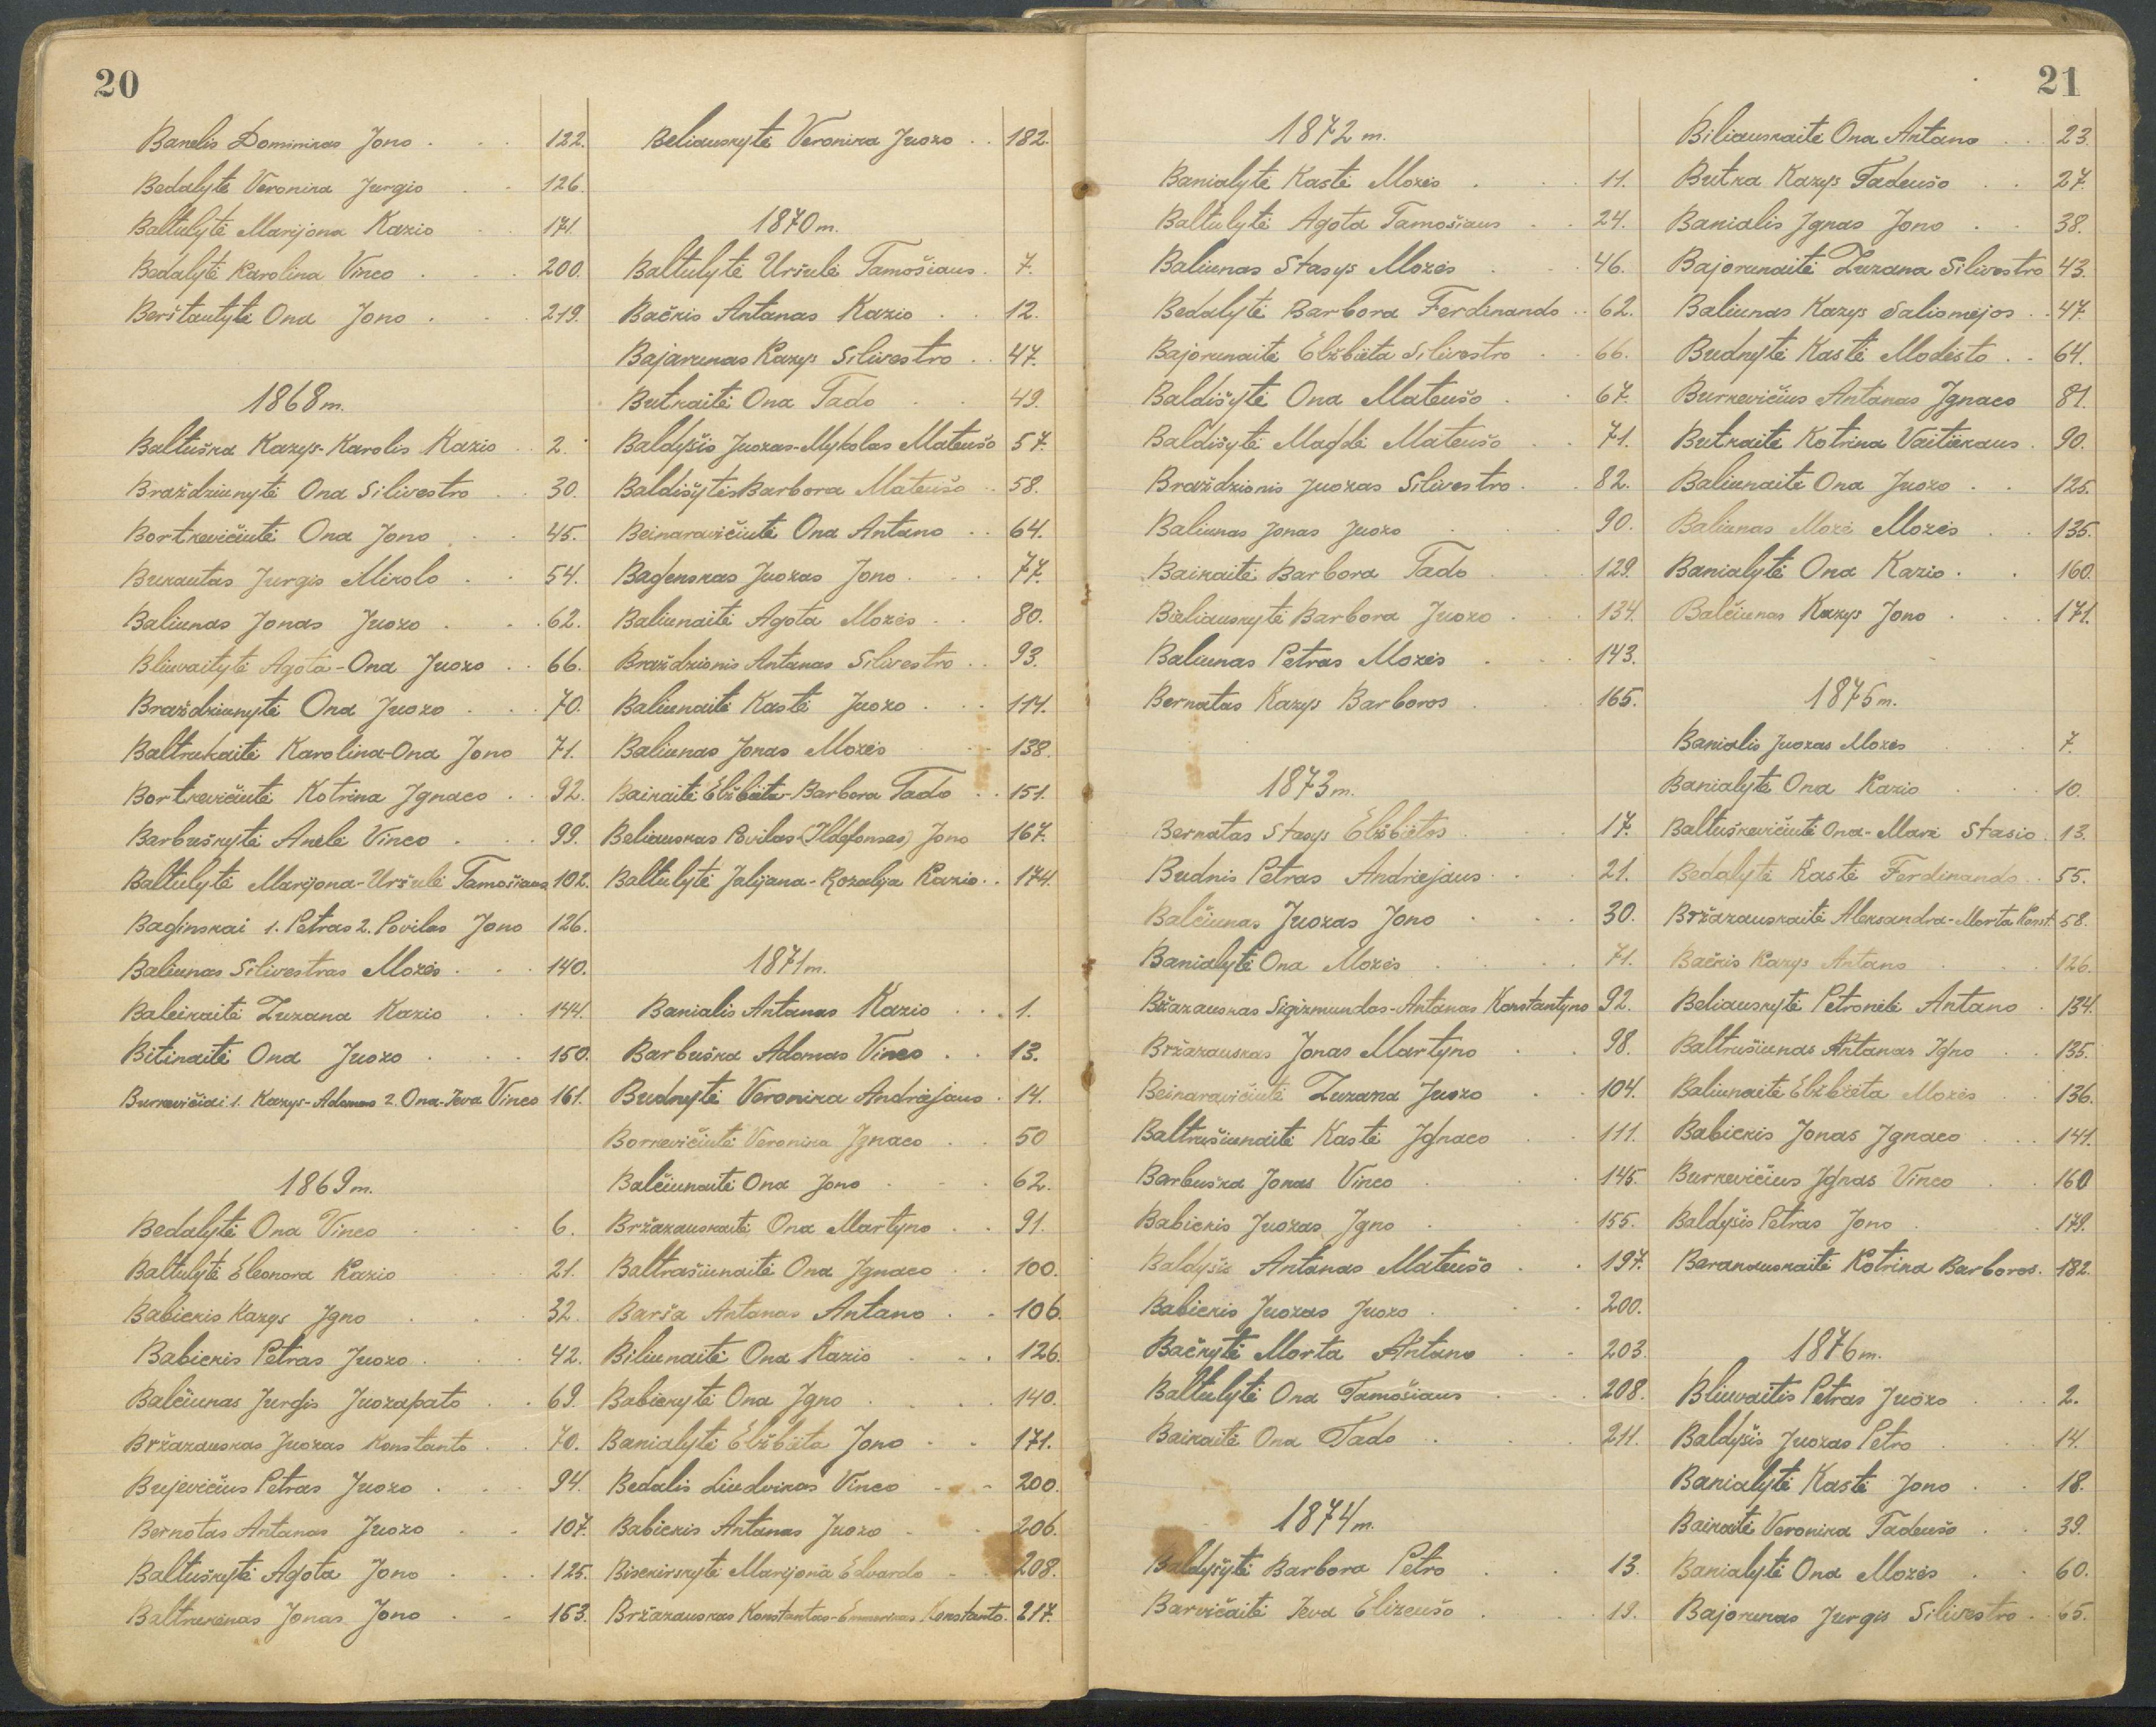 20
Banelis Dominikas Jono 122.
Bedalytė Veronika Jurgio 126.
Baltulytė Marijona Kazio 171.
Bedalytė Karolina Vinco 200.
Berštautytė Ona Jono 219.
1868 m.
Baltuška Kazys-Karolis Kazio 2.
Braždziunytė Ona Silivestro 30.
Bortkevičiutė Ona Jono 45.
Bukautas Jurgis Mikolo 54.
Baliunas Jonas Juozo 62.
Bliuvaitytė Agota-Ona Juozo 66.
Braždziunytė Ona Juozo 70.
Baltrukaitė Karolina-Ona Jono 71.
Bortkevičiutė Kotrina Jgnaco 92.
Barbuškytė Anelė Vinco 99.
Baltulytė Marijona-Uršulė Tamošiaus 102.
Baginskai 1. Petras 2. Povilas Jono 126.
Baliunas Silivestras Mozės 140.
Baleikaitė Zuzana Kazio 144.
Bitinaitė Ona Juozo 150.
Burkevičiai 1. Kazys-Adomas 2. Ona-Jeva Vinco 161.
1869 m.
Bedalytė Ona Vinco 6.
Baltulytė Eleonora Kazio 21.
Babickis Kazys Jgno 32.
Babickis Petras Juozo 42.
Balčiunas Jurgis Juozapato 69.
Bržazauskas Juozas Konstanto 70.
Bujevičius Petras Juozo 94.
Bernotas Antanas Juozo 107.
Baltuškytė Agota Jono 125.
Baltrukėnas Jonas Jono 163.
Beliauskytė Veronika Juozo 182.
1870 m.
Baltulytė Uršulė Tamošiaus 7.
Bačkis Antanas Kazio 12.
Bajarunas Kazys Silivestro 47.
Butkaitė Ona Tado 49.
Baldyšis Juozas-Mykolas Mateušo 57.
Baldišytės Barbora Mateušo 58.
Beinaravičiutė Ona Antano 64.
Bagenskas Juozas Jono 77.
Baliunaitė Agota Mozės 80.
Braždzionis Antanas Silivestro 93.
Baliunaitė Kastė Juozo 114.
Baliunas Jonas Mozės 138.
Baikaitė Elžbieta-Barbora Tado 151.
Beliauskas Povilas (Ildefonsas) Jono 167.
Baltulytė Julijana-Rozalija Kazio 174.
1871 m.
Banialis Antanas Kazio 1.
Barbuška Adomas Vinco 13.
Budnytė Veronika Andriejaus 14.
Borkevičiutė Veronika Jgnaco 50
Balčiunaitė Ona Jono 62.
Bržazauskaitė Ona Martyno 91.
Baltrašiunaitė Ona Jgnaco 100.
Barša Antanas Antano 106.
Biliunaitė Ona Kazio 126.
Babickytė Ona Jgno 140.
Banialytė Elžbieta Jono 171.
Bedalis Liudvikas Vinco 200.
Babickis Antanas Juozo 206.
Bisekirskytė Marijona Edvardo 208.
Bržazauskas Konstantas- Konstanto 217.
21
1872 m.
Banialytė Kastė Mozės 11.
Baltulytė Agota Tamošiaus 24.
Baliunas Stasys Mozės 46.
Bedalytė Barbora Ferdinando 62.
Bajorunaitė Elžbieta Silivestro 66.
Baldišytė Ona Mateušo 67.
Baldišytė Magdė Mateušo 71.
Braždzionis Juozas Silivestro 82.
Baliunas Jonas Juozo 90.
Baikaitė Barbora Tado 129.
Bieliauskytė Barbora Juozo 134.
Baliunas Petras Mozės 143.
Bernatas Kazys Barboros 165.
1873 m.
Bernatas Stasys Elžbietos 17.
Budnis Petras Andriejaus 21.
Balčiunas Juozas Jono 30.
Banialytė Ona Mozės 71.
Bžazauskas Sigizmundas-Antanas Konstantyno 92.
Bržazauskas Jonas Martyno 98.
Beinaravičiutė Zuzana Juozo 104.
Baltrušiunaitė Kastė Jgnaco 111.
Barbuška Jonas Vinco 145.
Babickis Juozas Jgno 155.
Baldyšis Antanas Mateušo 197.
Babickis Juozas Juozo 200.
Bačkytė Morta Antano 203.
Baltulytė Ona Tamošiaus 208.
Baikaitė Ona Tado 211.
1874 m.
Baldyšytė Barbora Petro 13.
Barvičaitė Jeva Elizeušo 19.
Biliauskaitė Ona Antano 23.
Butka Kazys Tadeušo 27.
Banialis Jgnas Jono 38.
Bajorunaitė Zuzana Silivestro 43.
Baliunas Kazys Saliomėjos 47.
Budnytė Kastė Modesto 64.
Burkevičius Antanas Jgnaco 81.
Butkaitė Kotrina Vaitiekaus 90.
Baliunaitė Ona Juozo 125.
Baliunas Mozė Mozės 135.
Banialytė Ona Kazio 160.
Balčiunas Kazys Jono 171.
1875 m.
Banialis Juozas Mozės 7.
Banialytė Ona Kazio 10.
Baltuškevičiutė Ona-Marė Stasio 13.
Bedalytė Kastė Ferdinando 55.
Bržazauskaitė Aleksandra-Morta Konst. 58.
Bačkis Kazys Antano 126.
Beliauskytė Petronėlė Antano 134.
Baltrušiunas Antanas Jgno 135.
Baliunaitė Elžbieta Mozės 136.
Babickis Jonas Jgnaco 141.
Burkevičius Jgnas Vinco 160
Baldyšis Petras Jono 179.
Berankuskaitė Kotrina Barboros. 182.
1876 m.
Bliuvaitis Petras Juozo 2.
Baldyšis Juozas Petro 14.
Banialytė Kastė Jono 18.
Baikaitė Veronika Tadeušo 39.
Banialytė Ona Mozės 60.
Bajorunas Jurgis Silivestro 65.